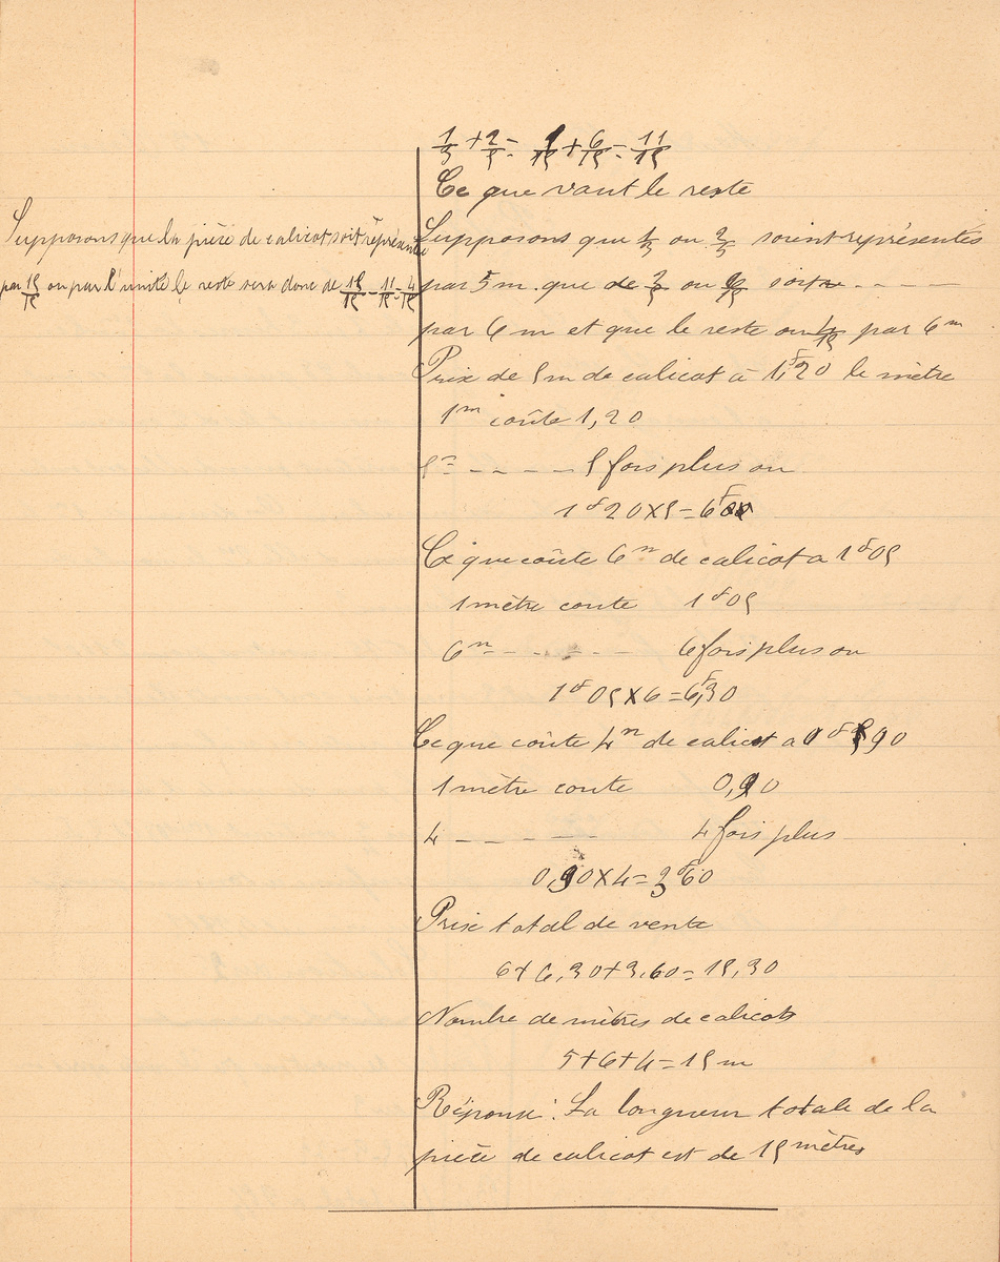 1/3 + 2/5 = 5/15 + 6/15 = 11/15
Ce que vaut le reste
Supposons que la pièce de calicot soit représentée
par 15/15 ou par l'unité le reste sera donc de 15/15 - 11/15 = 4/15
Supposons que 1/3 ou 5/15 soient représentés
par 5 m. que de 2/5 ou 6/15 soit - - - -
par 6 m et que le reste ou 4/15 par 6 m
Prix de 5 m de calicot à 1,F20 le mètre
1m coûte 1,20
5m - - - - - 5 fois plus ou
1f20 x 5 = 6F00
Ce que coûte 6m de calicot a 1f05
1 mètre coute 1f05
6m - - - - - - 6 fois plus ou
1f05 x 6 = 6,F30
Ce que coûte 4m de calicot a 0f90
1 mètre coute 0,90
4 - - - - - - 4 fois plus
0,90 x 4 = 3f60
Prix total de vente
6 + 6,30 + 3,60 = 15,30
Nombre de mètres de calicots
5 + 6 + 4 = 15 m
Réponse : La longueur totale de la
pièce de calicot est de 15 mètres